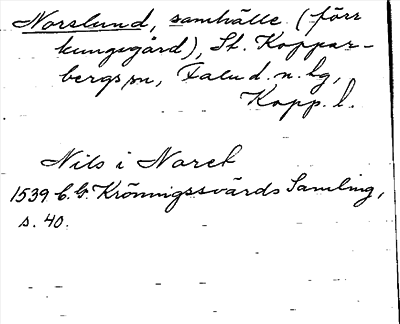 Norslund, samhälle (förr
kungsgård), St. Koppar-
bergs sn, Falu d. n. hg,
Kopp. l.
Nils i Noreh
1539 C. G. Kröningssvärds Samling,
s. 40.